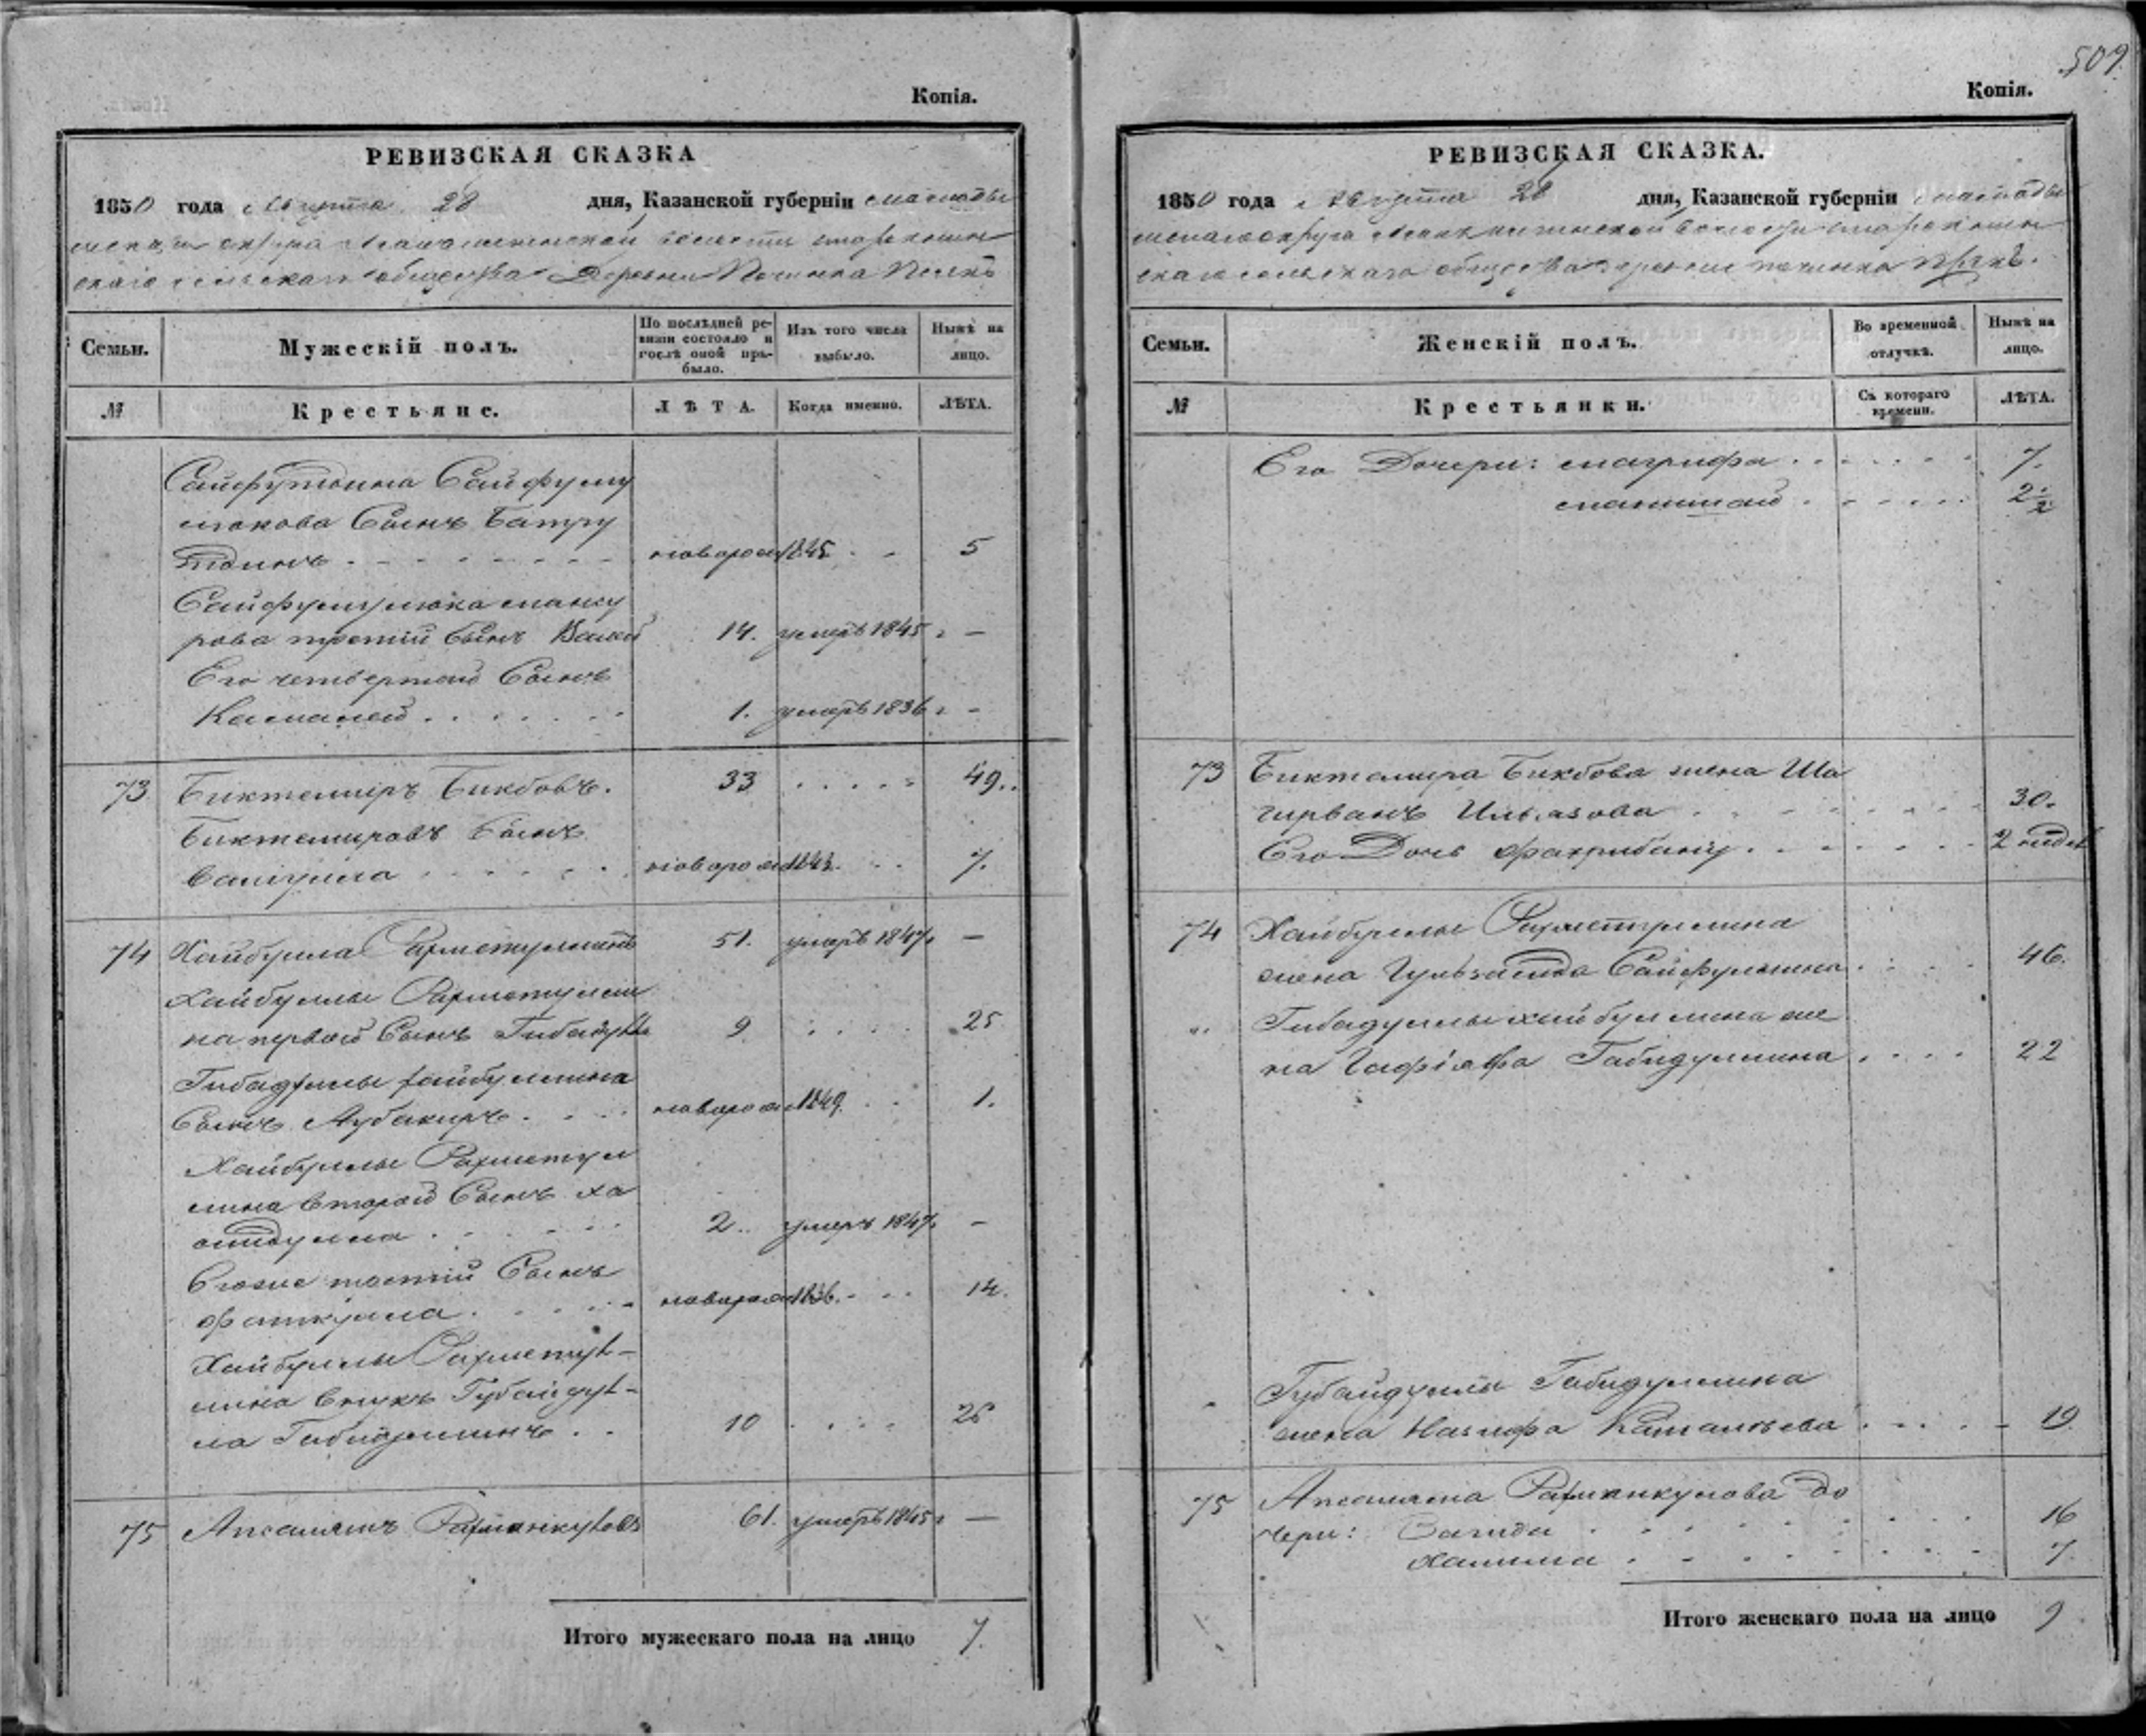 Копія.
РЕВИЗСКАЯ СКАЗКА
1850 года Августа 28 дня, Казанской губерніи Мамады
шскаго округа волости
скаго сельскаго общества Деревни Починка
Семьи. Мужескій полъ. По послѣдней ревизіи состояло и послѣ оной прибыло. Изъ того числа выбыло. Нынѣ на лицо.
№ Крестьяне. ЛѢТА. Когда именно. ЛѢТА.
Сайфутдина Сайфулму
люкова Сынъ Батру
тдинъ новорож 1845 5
Сайфулмулюка Мансу
рова третій сынъ Валей 14. умеръ 1845 г –
Его четвертой Сынъ
Калмалей 1. умеръ 1836 г –
73 Биктемиръ Бикбовъ. 33 49.
Биктемировъ Сынъ
Валиулла новорож 1843. 7.
74 Хайбулла Рахметуллинъ 51. умеръ 1847 г –
Хайбуллы Рахметулли
на первой Сынъ Гибадулла 9 25
Гибадуллы хайбуллина
Сынъ Аубакиръ новорож 1849. 1.
Хайбуллы Рахметул
лина второй Сынъ Ха
мидулла 2. умеръ 1847 г –
Егоже третій Сынъ
Фаткулла новорож 1836. 14.
Хайбуллы Рахметул-
лина внукъ Губайдул-
ла Габидуллинъ 10 26
75 Апсалямъ Рахманкуловъ 61. умеръ 1845 г –
Итого мужескаго пола на лицо 7.
509
Копія.
РЕВИЗСКАЯ СКАЗКА.
1850 года Августа 28 дня, Казанской губерніи Мамады
шскаго округа волости
скаго сельскаго общества деревни починка
Семьи. Женскій полъ. Во временной отлучкѣ. Нынѣ на лицо.
№ Крестьянки. Съ котораго времени. ЛѢТА.
Его Дочери: Магрифа 7.
2 1/2
73 Биктемира Бикбова жена Ша
гирванъ Ильясова 30.
Его Дочь Фахрибану 2 недел
74 Хайбуллы Рахметуллина
жена Гульзаида Сайфуллина 46.
Гибадуллы хайбуллина же
на Гафіяфа Габидуллина 22
Губайдуллы Габидуллина
жена Назифа 19
75 Апсаляма Рахманкулова до
чери: Вагида 16
Халима 7.
Итого женскаго пола на лицо 9